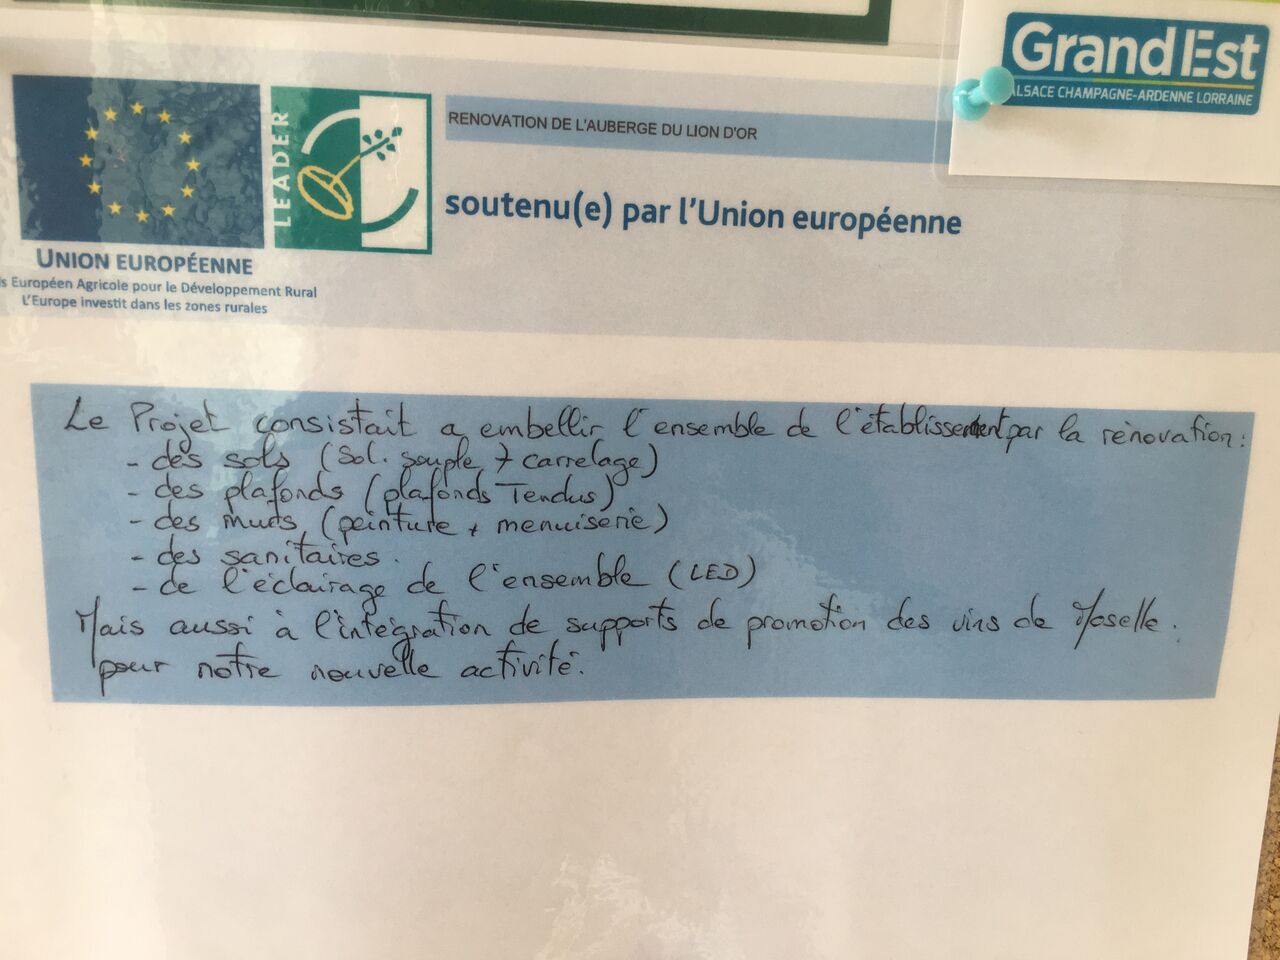 Grand Est
ALSACE CHAMPAGNE-ARDENNE LORRAINE
LEADER
RENOVATION DE L'AUBERGE DU LION D'OR
soutenu(e) par l'Union européenne
UNION EUROPÉENNE
s Européen Agricole pour le Développement Rural
L'Europe investit dans les zones rurales
Le Projet consistait a embellir l'ensemble de l'établissement par la rénovation :
- des sols (Sol. souple + carrelage)
- des plafonds (plafonds Tendus)
- des murs (peinture + menuiserie)
- des sanitaires.
- de l'éclairage de l'ensemble (LED)
Mais aussi à l'intégration de supports de promotion des vins de Moselle.
pour notre nouvelle activité.